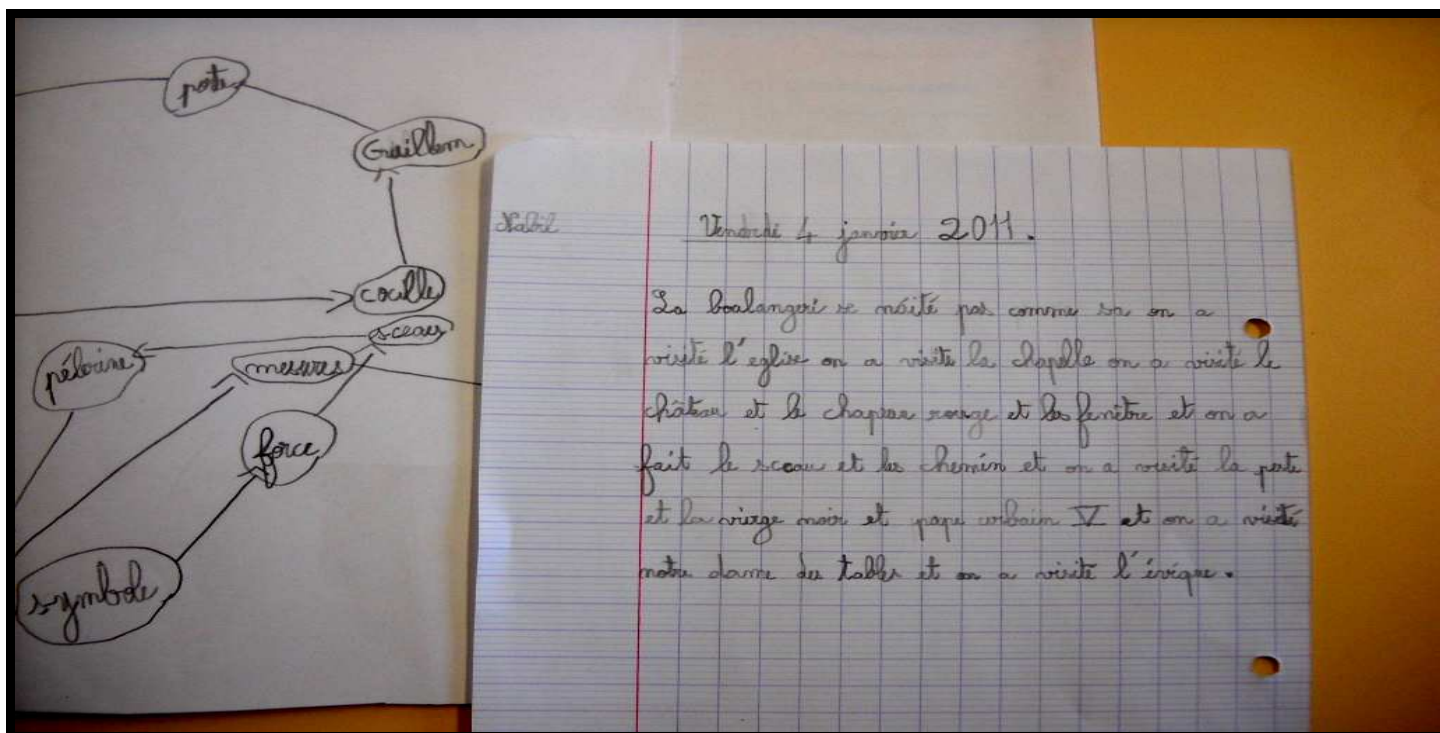 porte
Guillem
cocille
sceaux
pélérine
mesures
force
symbole
Nabil
Vendredi 4 janvier 2011.
La boulangeri se pas comme sa on a
visité l'eglise on a visite la chapelle on a visité le
château et le chapeau rouge et les fenêtre et on a
fait le sceau et les chemin et on a visité la porte
et la vierge noir et pape urbain V et on a visité
notre dame des tables et on a visite l'évique.